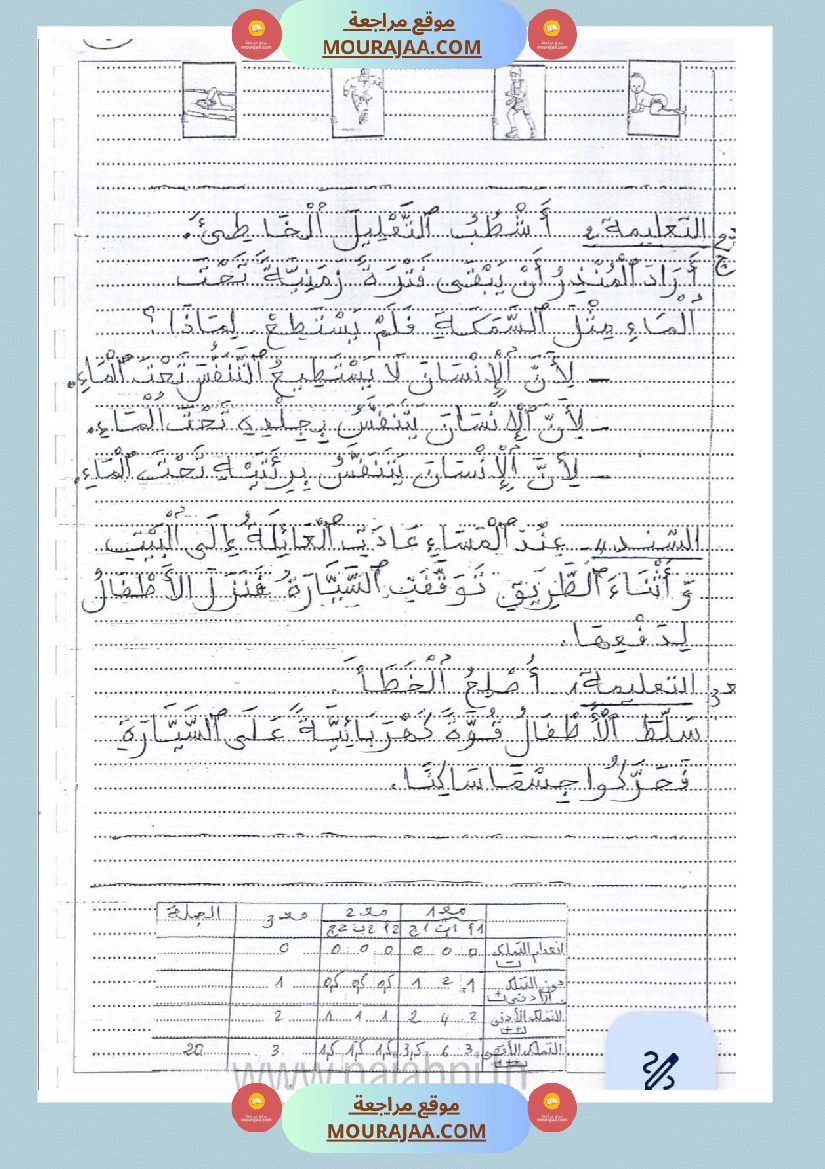 موقع مراجعة
MOURAJAA.COM
التعليمة 2: أَشْطُبُ ٱلتَّعْلِيلَ ٱلْخَاطِئَ.
أَرَادَ ٱلْمُنْذِرُ أَنْ يَبْقَى فَتْرَةً زَمَنِيَّةً تَحْتَ
ٱلْمَاءِ مِثْلَ ٱلسَّمَكَةِ فَلَمْ يَسْتَطِعْ. لِمَاذَا؟
– لِأَنَّ ٱلْإِنْسَانَ لَا يَسْتَطِيعُ ٱلتَّنَفُّسَ تَحْتَ ٱلْمَاءِ.
– لِأَنَّ ٱلْإِنْسَانَ يَتَنَفَّسُ بِجِلْدِهِ تَحْتَ ٱلْمَاءِ.
– لِأَنَّ ٱلْإِنْسَانَ يَتَنَفَّسُ بِرِئَتَيْهِ تَحْتَ ٱلْمَاءِ.
السند 4: عِنْدَ ٱلْمَسَاءِ عَادَتِ ٱلْعَائِلَةُ إِلَى ٱلْبَيْتِ
وَ أَثْنَاءَ ٱلطَّرِيقِ تَوَقَّفَتِ ٱلسَّيَّارَةُ فَنَزَلَ الأَطْفَالُ
لِدَفْعِهَا.
مع3 التعليمة 1: أُصْلِحُ ٱلْخَطَأَ.
سَلَّطَ ٱلْأَطْفَالُ قُوَّةً كَهْرَبَائِيَّةً عَلَى ٱلسَّيَّارَةِ
فَحَرَّكُوا جِسْمًا سَاكِنًا.
مع1 مع2 مع3 الجملة
1أ 1ب 1ج 2أ 2ب 2ج
انعدام التملك 0 0 0 0 0 0 0
دون التملك الأدنى 1 2 1 0,5 0,5 0,5 1
التملك الأدنى ++ 2 4 2 1 1 1 2
التملك الأقصى +++ 3 6 3,5 1,5 1,5 1,5 3 20
موقع مراجعة
MOURAJAA.COM